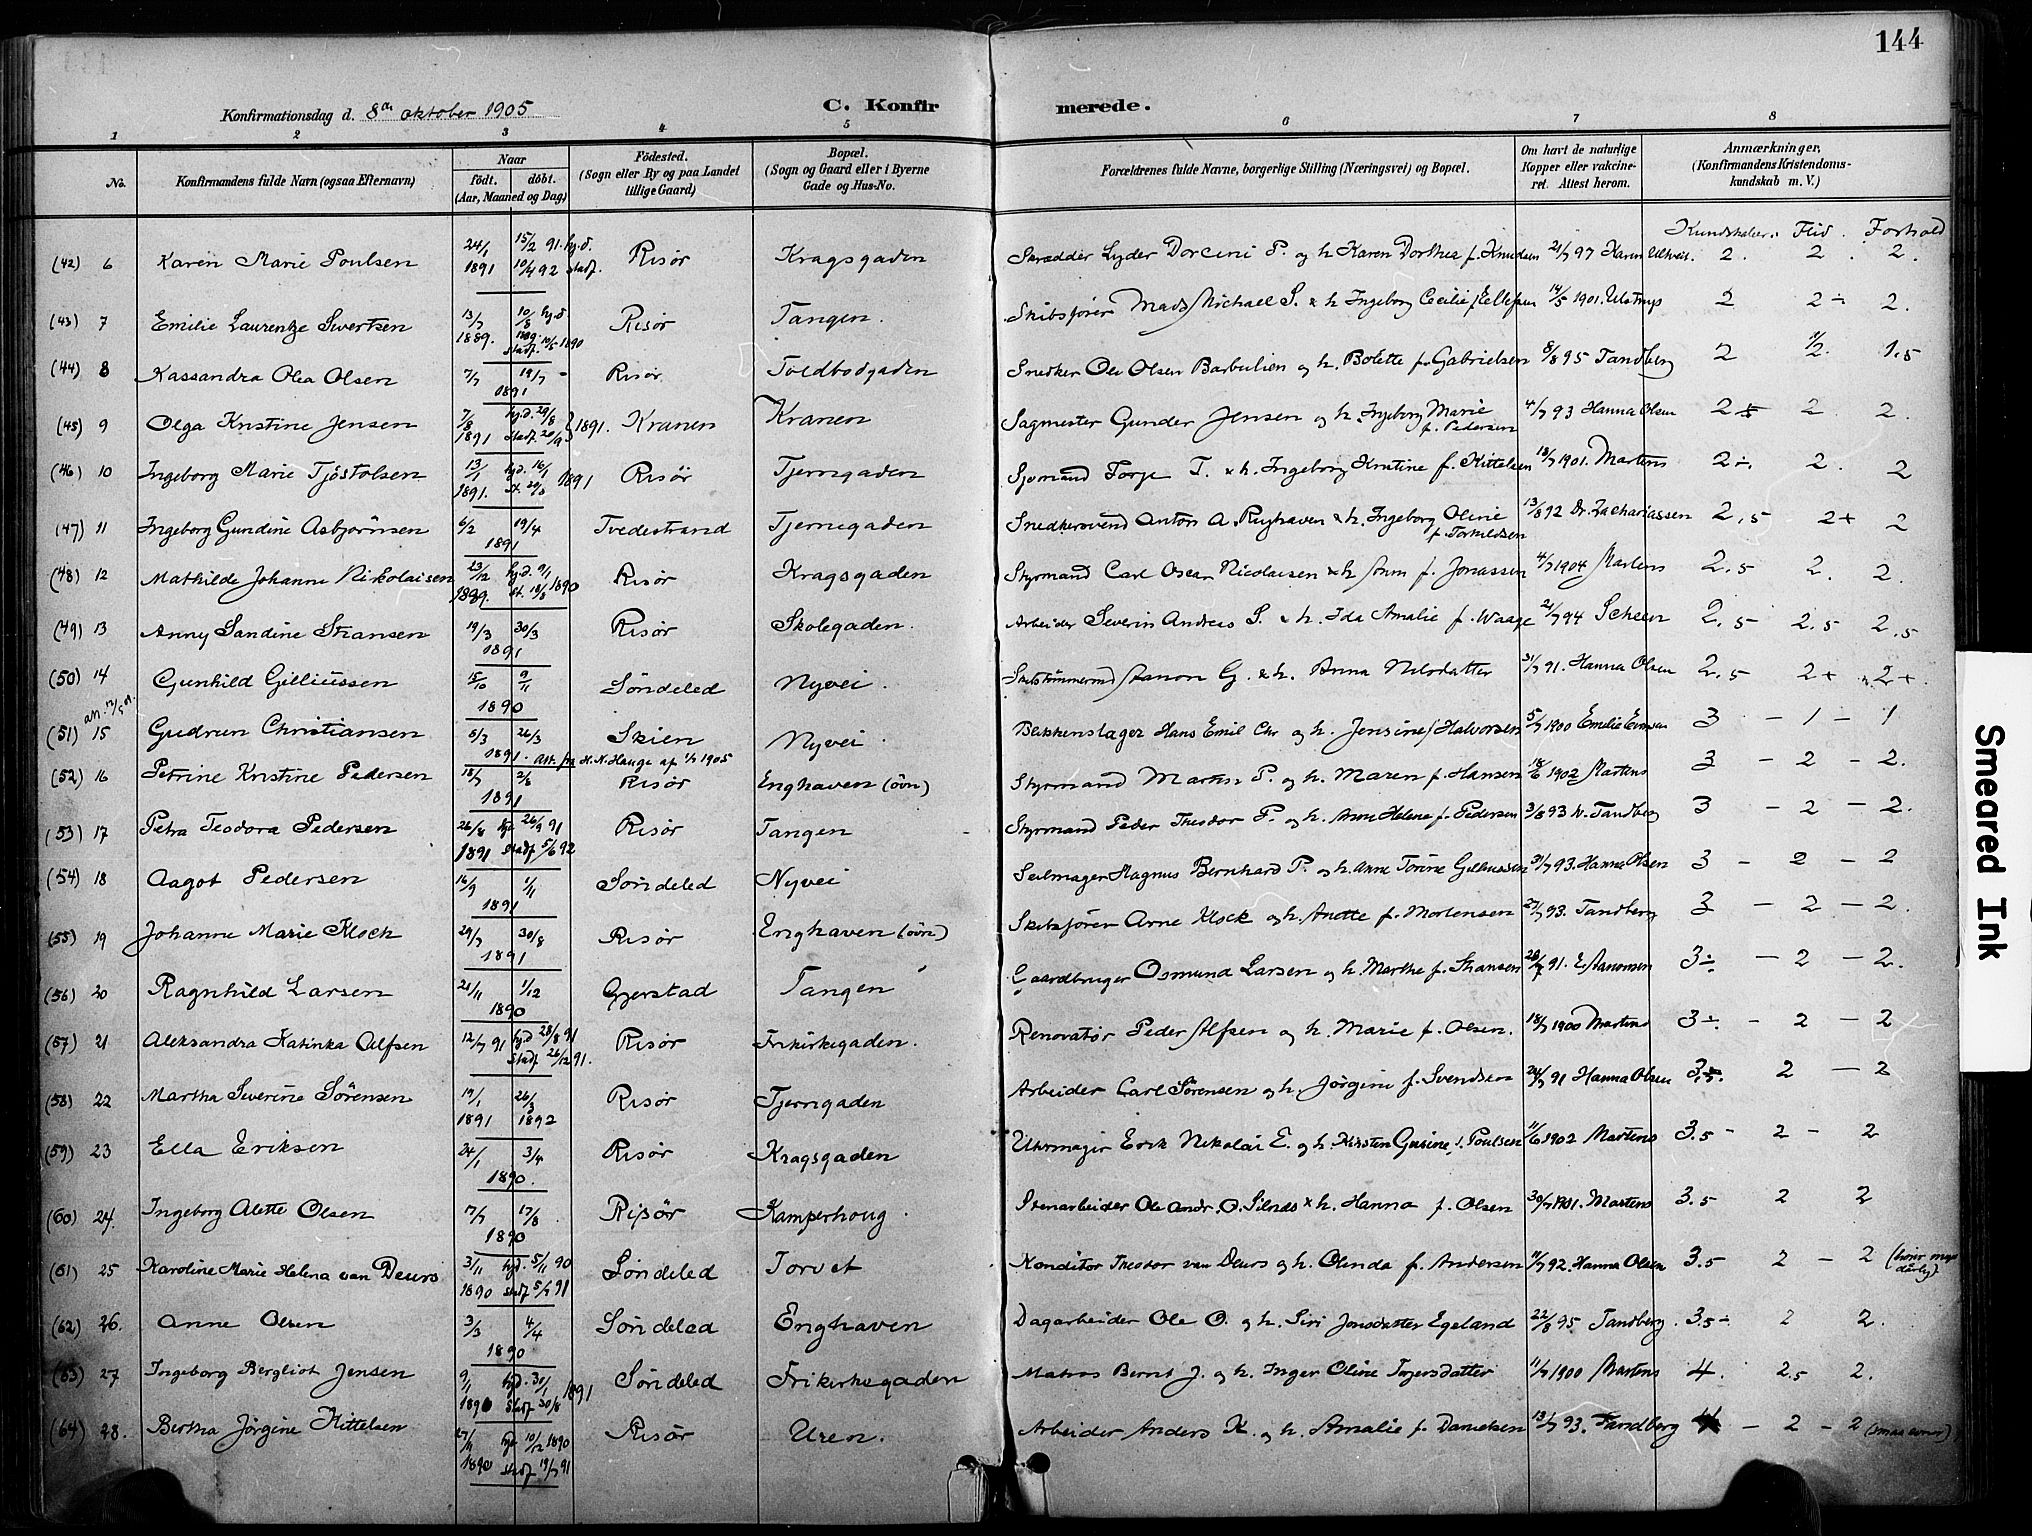 144
Konfirmationsdag d. 8de oktober 1905
C. Konfirmerede.
1 2 3 4 5 6 7 8
No.
Konfirmandens fulde Navn (ogsaa Efternavn)
Naar
födt. döbt.
(Aar, Maaned og Dag)
Födested.
(Sogn eller By og paa Landet
tillige Gaard)
Bopæl.
(Sogn og Gaard eller i Byerne
Gade og Hus-No.
Forældrenes fulde Navne, borgerlige Stilling (Næringsvei) og Bopæl.
Om havt de naturlige
Kopper eller vakcine-
ret. Attest herom.
Anmærkninger,
(Konfirmandens Kristendoms-
kundskab m. V.)
Kundskaber. Flid. Forhold
(42) 6 Karen Marie Poulsen 24/1 1891 15/2 91. hj.d. 10/4 92 stadf. Risør Kragsgaden Skrædder Lyder Dorcini P. og h. Karen Dorthea f. Knudsen 21/7 97 Karen 2. 2. 2.
(43) 7 Emilie Laurentze Sivertsen 13/7 1889. 10/8 hj.d 1889. Stadf. 10/5 1890 Risør Tangen. Skibsfører Mads Michael S. & h. Ingeborg Cecilie f. Ellefsen 14/5 1901. Ulstrup 2 2÷ 2.
(44) 8 Kassandra Olea Olsen 7/7 19/7 - 1891 Risør Toldbodgaden Snedker Ole Olsen Barbulien og h. Bolette f. Gabrielsen 8/8 95 Tandberg 2 1/2. 1.5
(45) 9 Olga Kristine Jensen 7/8 1891 hj.d. 29/8 Stadf. 20/9 1891. Kranen Kranen Sagmester Gunder Jensen og h. Ingeborg Marie f. Pedersen 4/7 93 Hanna Olsen 2÷ 2. 2.
(46) 10 Ingeborg Marie Tjöstolsen 13/1 1891. hjd. 16/1 St. 29/3 1891 Risør Tjerngaden Sjomand Torje T. & h. Ingeborg Kristine f. Kittelsen 18/7 1901. Martens 2÷. 2. 2
(47) 11 Ingeborg Gundine Asbjörnsen 6/2 19/4 1891 Tvedestrand Tjernegaden Snedkersvend Anton A. Rughaven & h. Ingeborg Oline f. Torkildsen 13/8 92 Dr. Zachariassen 2,5 2+ 2
(48) 12 Mathilde Johanne Nikolaisen 23/12 1889. hj.d. 9/1 St. 18/3 1890 Risør Kragsgaden Styrmand Carl Oscar Nicolaisen & h. Anne f. Jonassen 4/7 1904 Martens 2,5 2. 2.
(49) 13 Anny Sandine Hansen 19/3 30/3 1891 Risør Skolegaden. Arbeider Severin Andreas S. & h. Ida Amalie f. Waage 21/7 94 Scheen 2,5 2,5 2,5
(50) 14 Gunhild Gilliussen 15/10 9/11 1890 Söndeled Nyvei. Skibstømmermd Aanon G. & h. Anna Nilsdatter 31/7 91. Hanna Olsen 2,5 2+ 2+.
(51) 15 Gudrun Christiansen 5/3 26/3 1891. Att. fra H. N. Hauge af 1/7 1905 Skien Nyvei. Blikkenslager Hans Emil Chr og h. Jensine f. Halvorsen 5/7 1900 Emilie 3 - 1 - 1
(52) 16 Petrine Kristine Pedersen 18/7 2/8 1891 Risør Enghaven (övre) Styrmand Martin P. og h. Maren f. Hansen 18/6 1902 Martens 3 - 2 - 2.
(53) 17 Petra Teodora Pedersen 26/8 1891 hj. 26/9 91 Stadf 5/6 92 Risør Tangen Styrmand Peder Theodor P. og h. Anne Helene f. Pedersen 3/8 93 N. Tandberg 3 - 2 - 2.
(54) 18 Aagot Pedersen 16/9 1/11 1891 Söndeled Nyvei Seilmager Magnus Bernhard P. og h. Anne Torine Gilliussen 31/7 93. Hanna Olsen 3 - 2 - 2
(55) 19 Johanne Marie Klock 29/7 30/8 1891 Risør Enghaven (övre) Skibsfører Arne Klock og h. Anette f. Mortensen 27/7 93. Tandberg 3 - 2 - 2.
(56) 20 Ragnhild Larsen 21/11 1/12 1890 Gjerstad Tangen Gaardbruger Osmund Larsen og h. Marthe f. Hansen 28/7 91. E. Aanonsen 3÷ - 2 - 2.
(57) 21 Aleksandra Katinka Alfsen 12/7 91 hj.d 28/8 91 Stadf. 26/12 91. Risør Frikirkegaden. Renovatør Peder Alfsen og h. Marie f. Olsen. 18/7 1900 Martens 3÷. - 2 - 2
(58) 22 Martha Severine Sörensen 19/1 1891 26/3 1892 Risør Tjerngaden Arbeider Carl Sörensen og h. Jörgine f. Svendsen 24/7 91 Hanna Olsen 3,5. 2 - 2
(59) 23 Ella Eriksen 24/1 3/4 1890. Risør Kragsgaden Uhrmager Erik Nikolai E. og h. Kirsten Gusine f. Poulsen 11/6 1902 Martens 3.5 - 2 - 2
(60) 24. Ingeborg Alette Olsen 17/7 17/8. 1890 Risør Kamperhoug. Stenarbeider Ole Andr. O. Silnæs & h. Hanna f. Olsen 30/7 1901. Martens 3.5 2 2
(61) 25 Karoline Marie Helena van Deurs 3/11 1890 hjd. 5/11 90 Stadf 5/7 91 Söndeled Torvet Konditor Theodor van Deurs og h. Olinda f. Andersen 11/7 92. Hanna Olsen 3.5 2 - 2 (hører meget dårlig)
(62) 26. Anne Olsen 3/3 4/4 1890 Söndeled Enghaven Dagarbeider Ole O. og h. Siri Jonsdatter Egeland 22/8 95 Tandberg. 3.5÷. 2 2.
(63) 27 Ingeborg Bergliot Jensen 9/1 1890 hjd. 30/1 Stadf 30/8 1891 Söndeled Frikirkegaden Matros Bernt J. og h. Inger Oline Torjersdatter 11/7 1900 Martens 4. 2.5 2.
(64) 28. Bertha Jörgine Kittelsen 27/11 1890 hj. 10/12 1890 Stadf 19/7 91 Risør Uren. Arbeider Anders K. og h. Amalie f. Danielsen 13/7 93. Tandberg 4 - 2 - 2 (smaa evner)
Smeared Ink